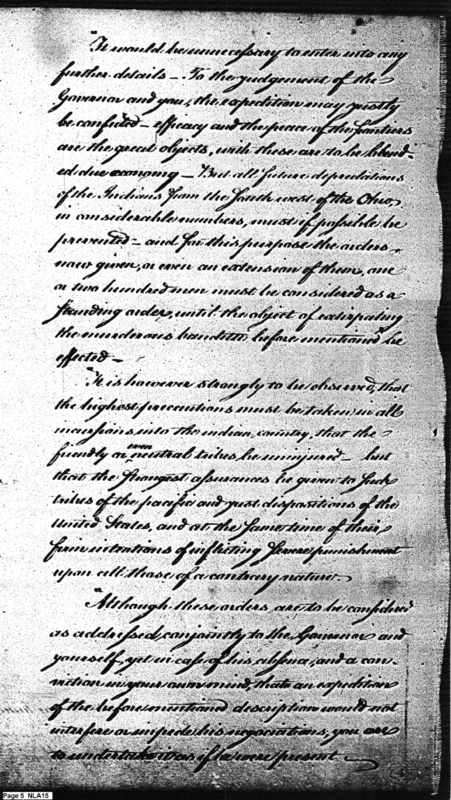 "It would be unnecessary to enter into any
further details – To the judgement of the
Governor and you, the expedition may justly
be confided – efficacy and the peace of the frontiers
are the great objects, with these are to be blend-
ed due economy – But all future depredations
of the Indians from the South west of the Ohio,
in considerable numbers, must if possible be
prevented – and for this purpose the orders
now given, or even an extension of them, one
or two hundred men must be considered as a
Standing order, until the object of extirpating
the murderous banditti before mentioned be
effected –
"It is however strongly to be observed, that
the highest precautions must be taken in all
incursions into the indian country, that the
friendly or even neutral tribes, be uninjured – but
that the Strongest assurances be given to Such
tribes of the pacific and just dispositions of the
United States, and at the Same time of their
firm intentions of inflicting Severe punishment
upon all those of a contrary nature.
"Although these orders are to be considered
as addressed conjointly to the Governor and
yourself, yet in case of his absence, and a con-
viction in your own mind, that an expedition
of the before mentioned description would not
interfere or impede his negociations, you are
to undertake it as if he were present
Page 5 NLA15